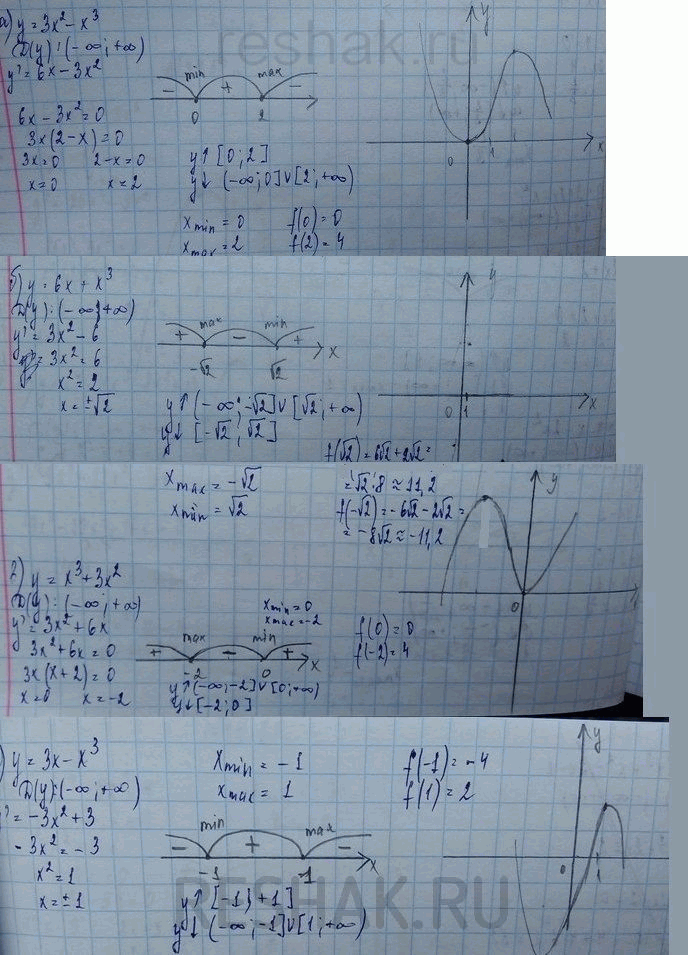 reshak.ru
а) y = 3x² - x³
D(y): (-∞; +∞)
y' = 6x - 3x²
6x - 3x² = 0
3x(2-x) = 0
3x=0 2-x=0
x=0 x=2
min max
- + -
0 2
y↑ [0; 2]
y↓ (-∞; 0]∪[2; +∞)
x min = 0 f(0) = 0
x max = 2 f(2) = 4
y
0 1 x
б) y = 6x + x³
D(y): (-∞; +∞)
y' = 3x² - 6
3x² = 6
x² = 2
x = ±√2
max min
+ - + x
-√2 √2
y↑ (-∞; -√2]∪[√2; +∞)
y↓ [-√2; √2]
f(√2) = 6√2 + 2√2 =
y
0 1 x
x max = -√2
x min = √2
= √2·8 ≈ 11,2
f(-√2) = -6√2 - 2√2 =
= -8√2 ≈ -11,2
y
0
г) y = x³ + 3x²
D(y): (-∞; +∞)
y' = 3x² + 6x
3x² + 6x = 0
3x(x+2) = 0
x=0 x=-2
x min = 0
x max = -2
max min
+ - + x
-2 0
y↑ (-∞; -2]∪[0; +∞)
y↓ [-2; 0]
f(0) = 0
f(-2) = 4
) y = 3x - x³
D(y): (-∞; +∞)
y' = -3x² + 3
-3x² = -3
x² = 1
x = ±1
x min = -1
x max = 1
f(-1) = -4
f(1) = 2
min max
- + - x
-1 1
y↑ [-1; +1]
y↓ (-∞; -1]∪[1; +∞)
y
0 1
RESHAK.RU